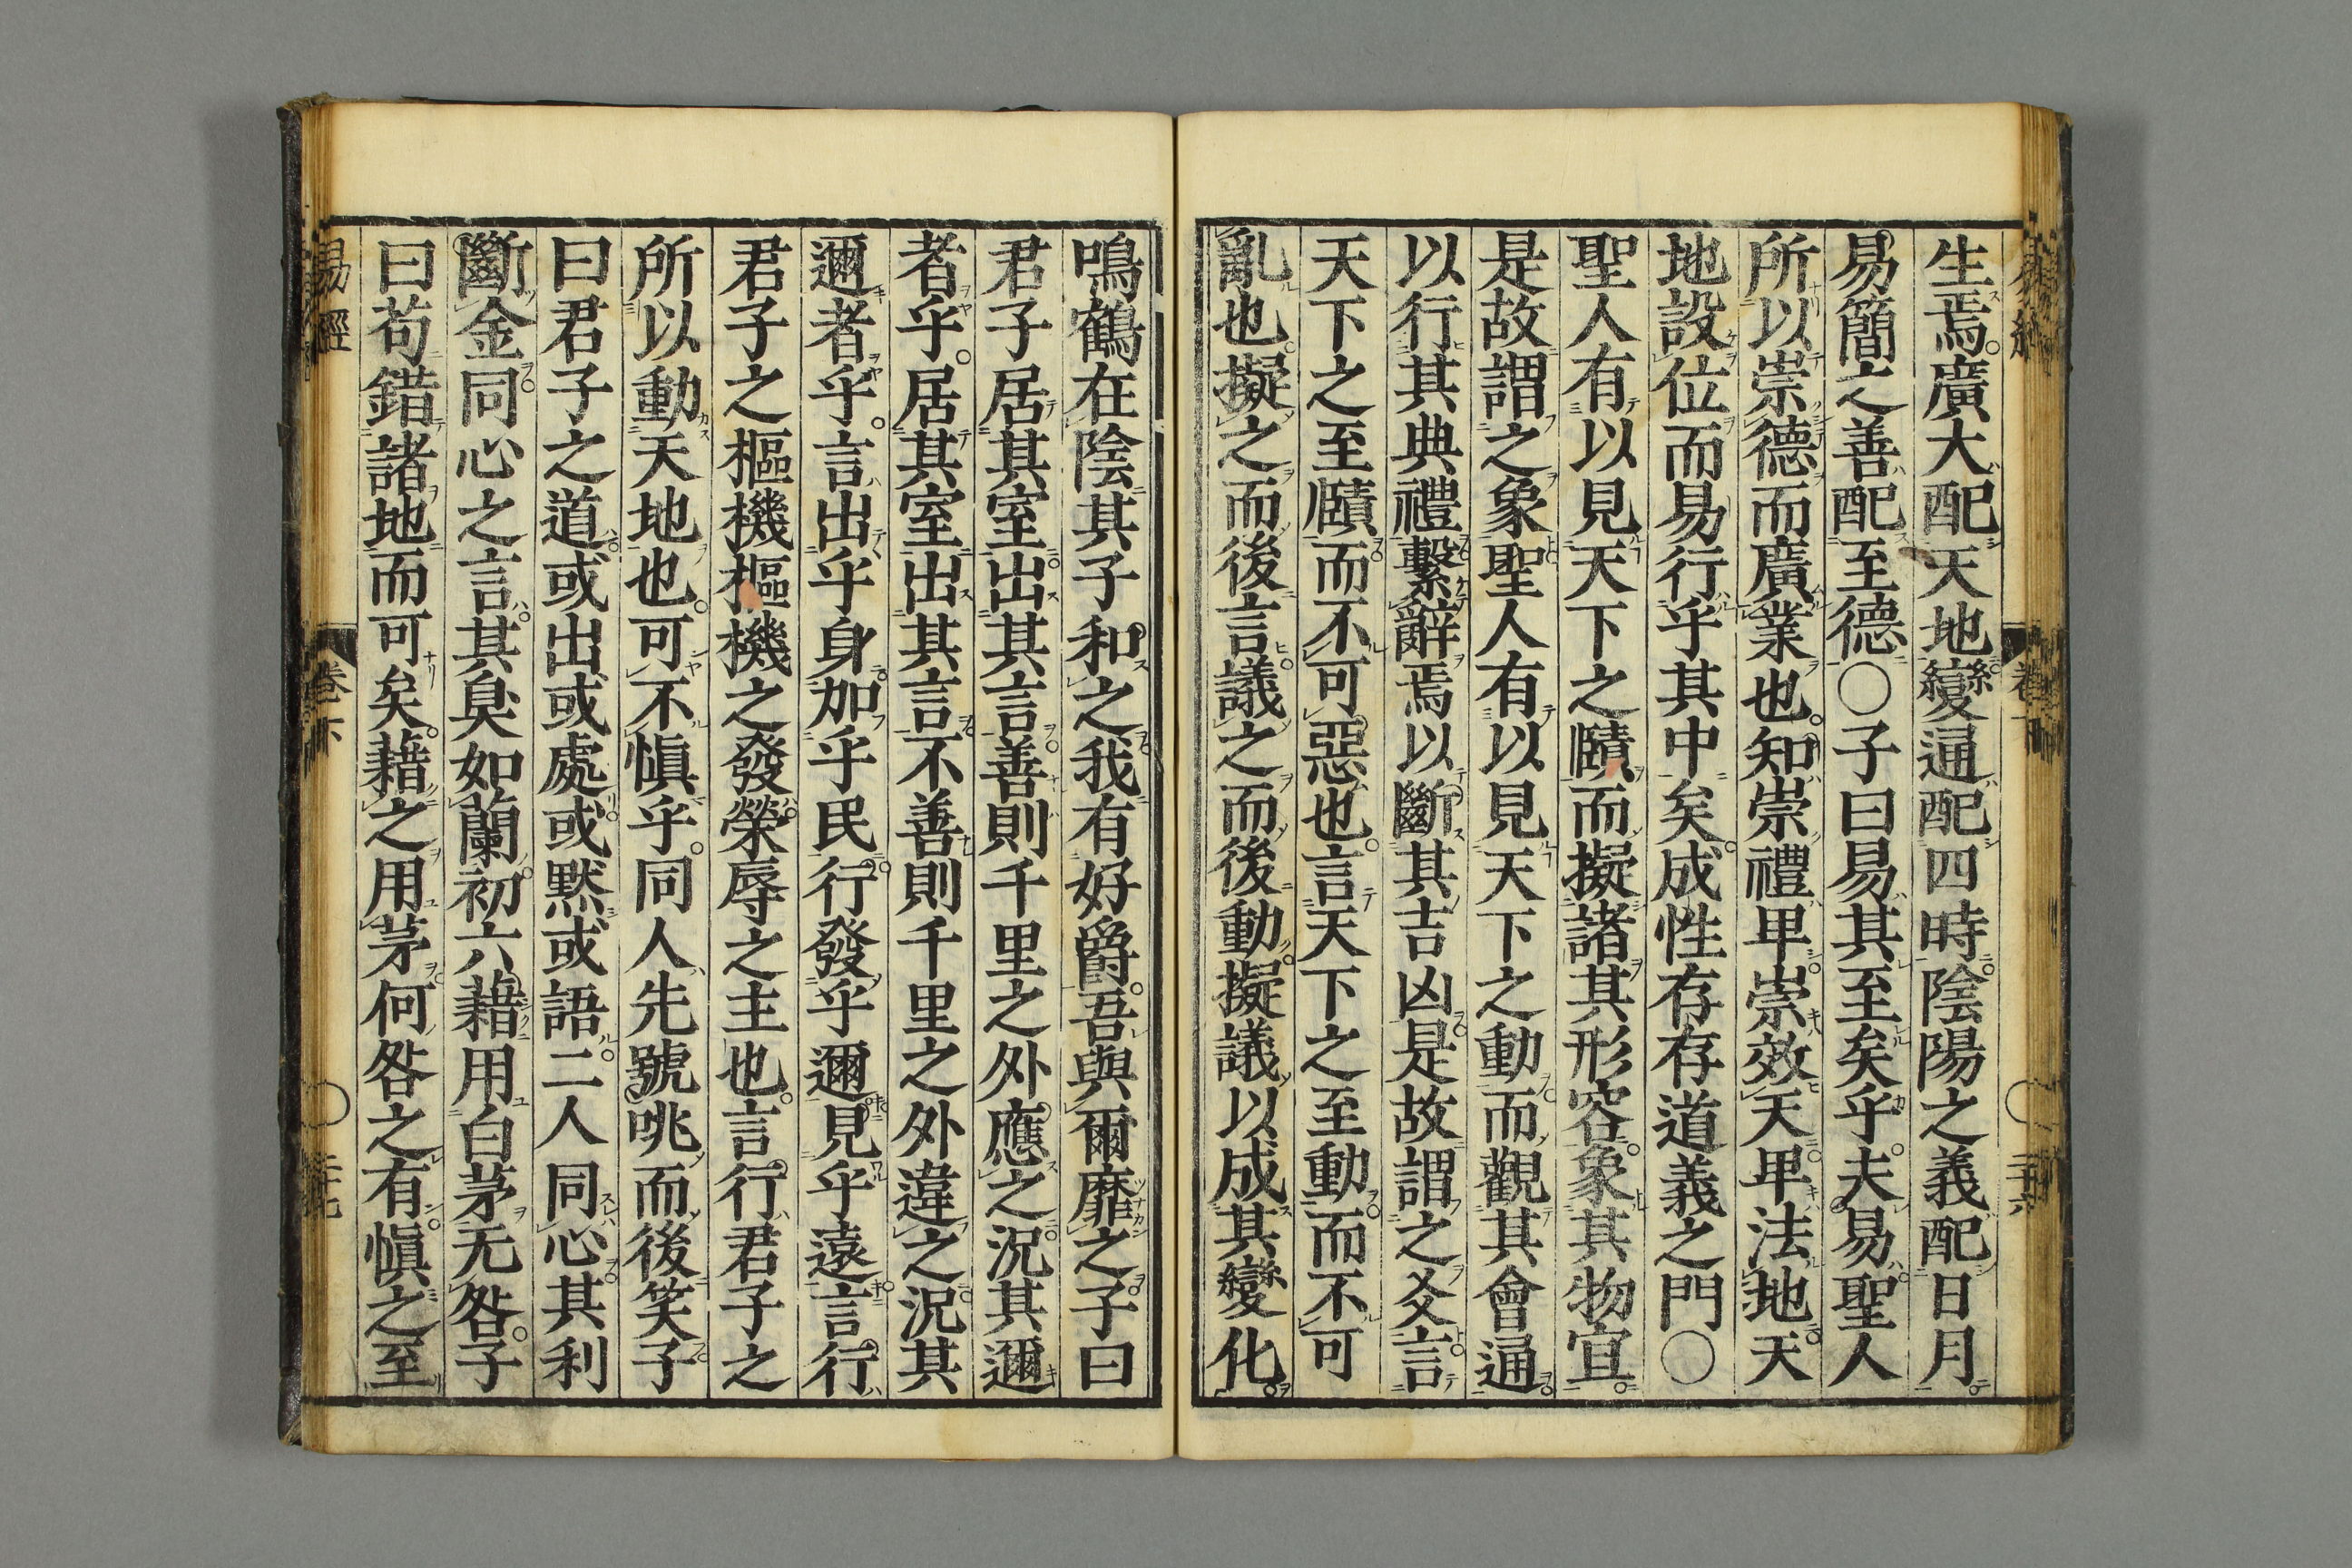 生焉廣大配天地變通配四時陰陽之義配日月
易簡之善配至德○子曰易其至矣乎夫易聖人
所以崇德而廣業也知崇禮卑崇效天卑法地天
地設位而易行乎其中矣成性存存道義之門○
聖人有以見天下之賾而擬諸其形容象其物宜
是故謂之象聖人有以見天下之動而觀其會通
以行其典禮繫辭焉以斷其吉凶是故謂之爻言
天下之至賾而不可惡也言天下之至動而不可
亂也擬之而後言議之而後動擬議以成其變化
鳴鶴在陰其子和之我有好爵吾與爾靡之子曰
君子居其室出其言善則千里之外應之況其邇
者乎居其室出其言不善則千里之外違之況其
邇者乎言出乎身加乎民行發乎邇見乎遠言行
君子之樞機樞機之發榮辱之主也言行君子之
所以動天地也可不慎乎同人先號咷而後笑子
曰君子之道或出或處或默或語二人同心其利
斷金同心之言其臭如蘭初六藉用白茅无咎子
曰苟錯諸地而可矣藉之用茅何咎之有慎之至
易經 卷下